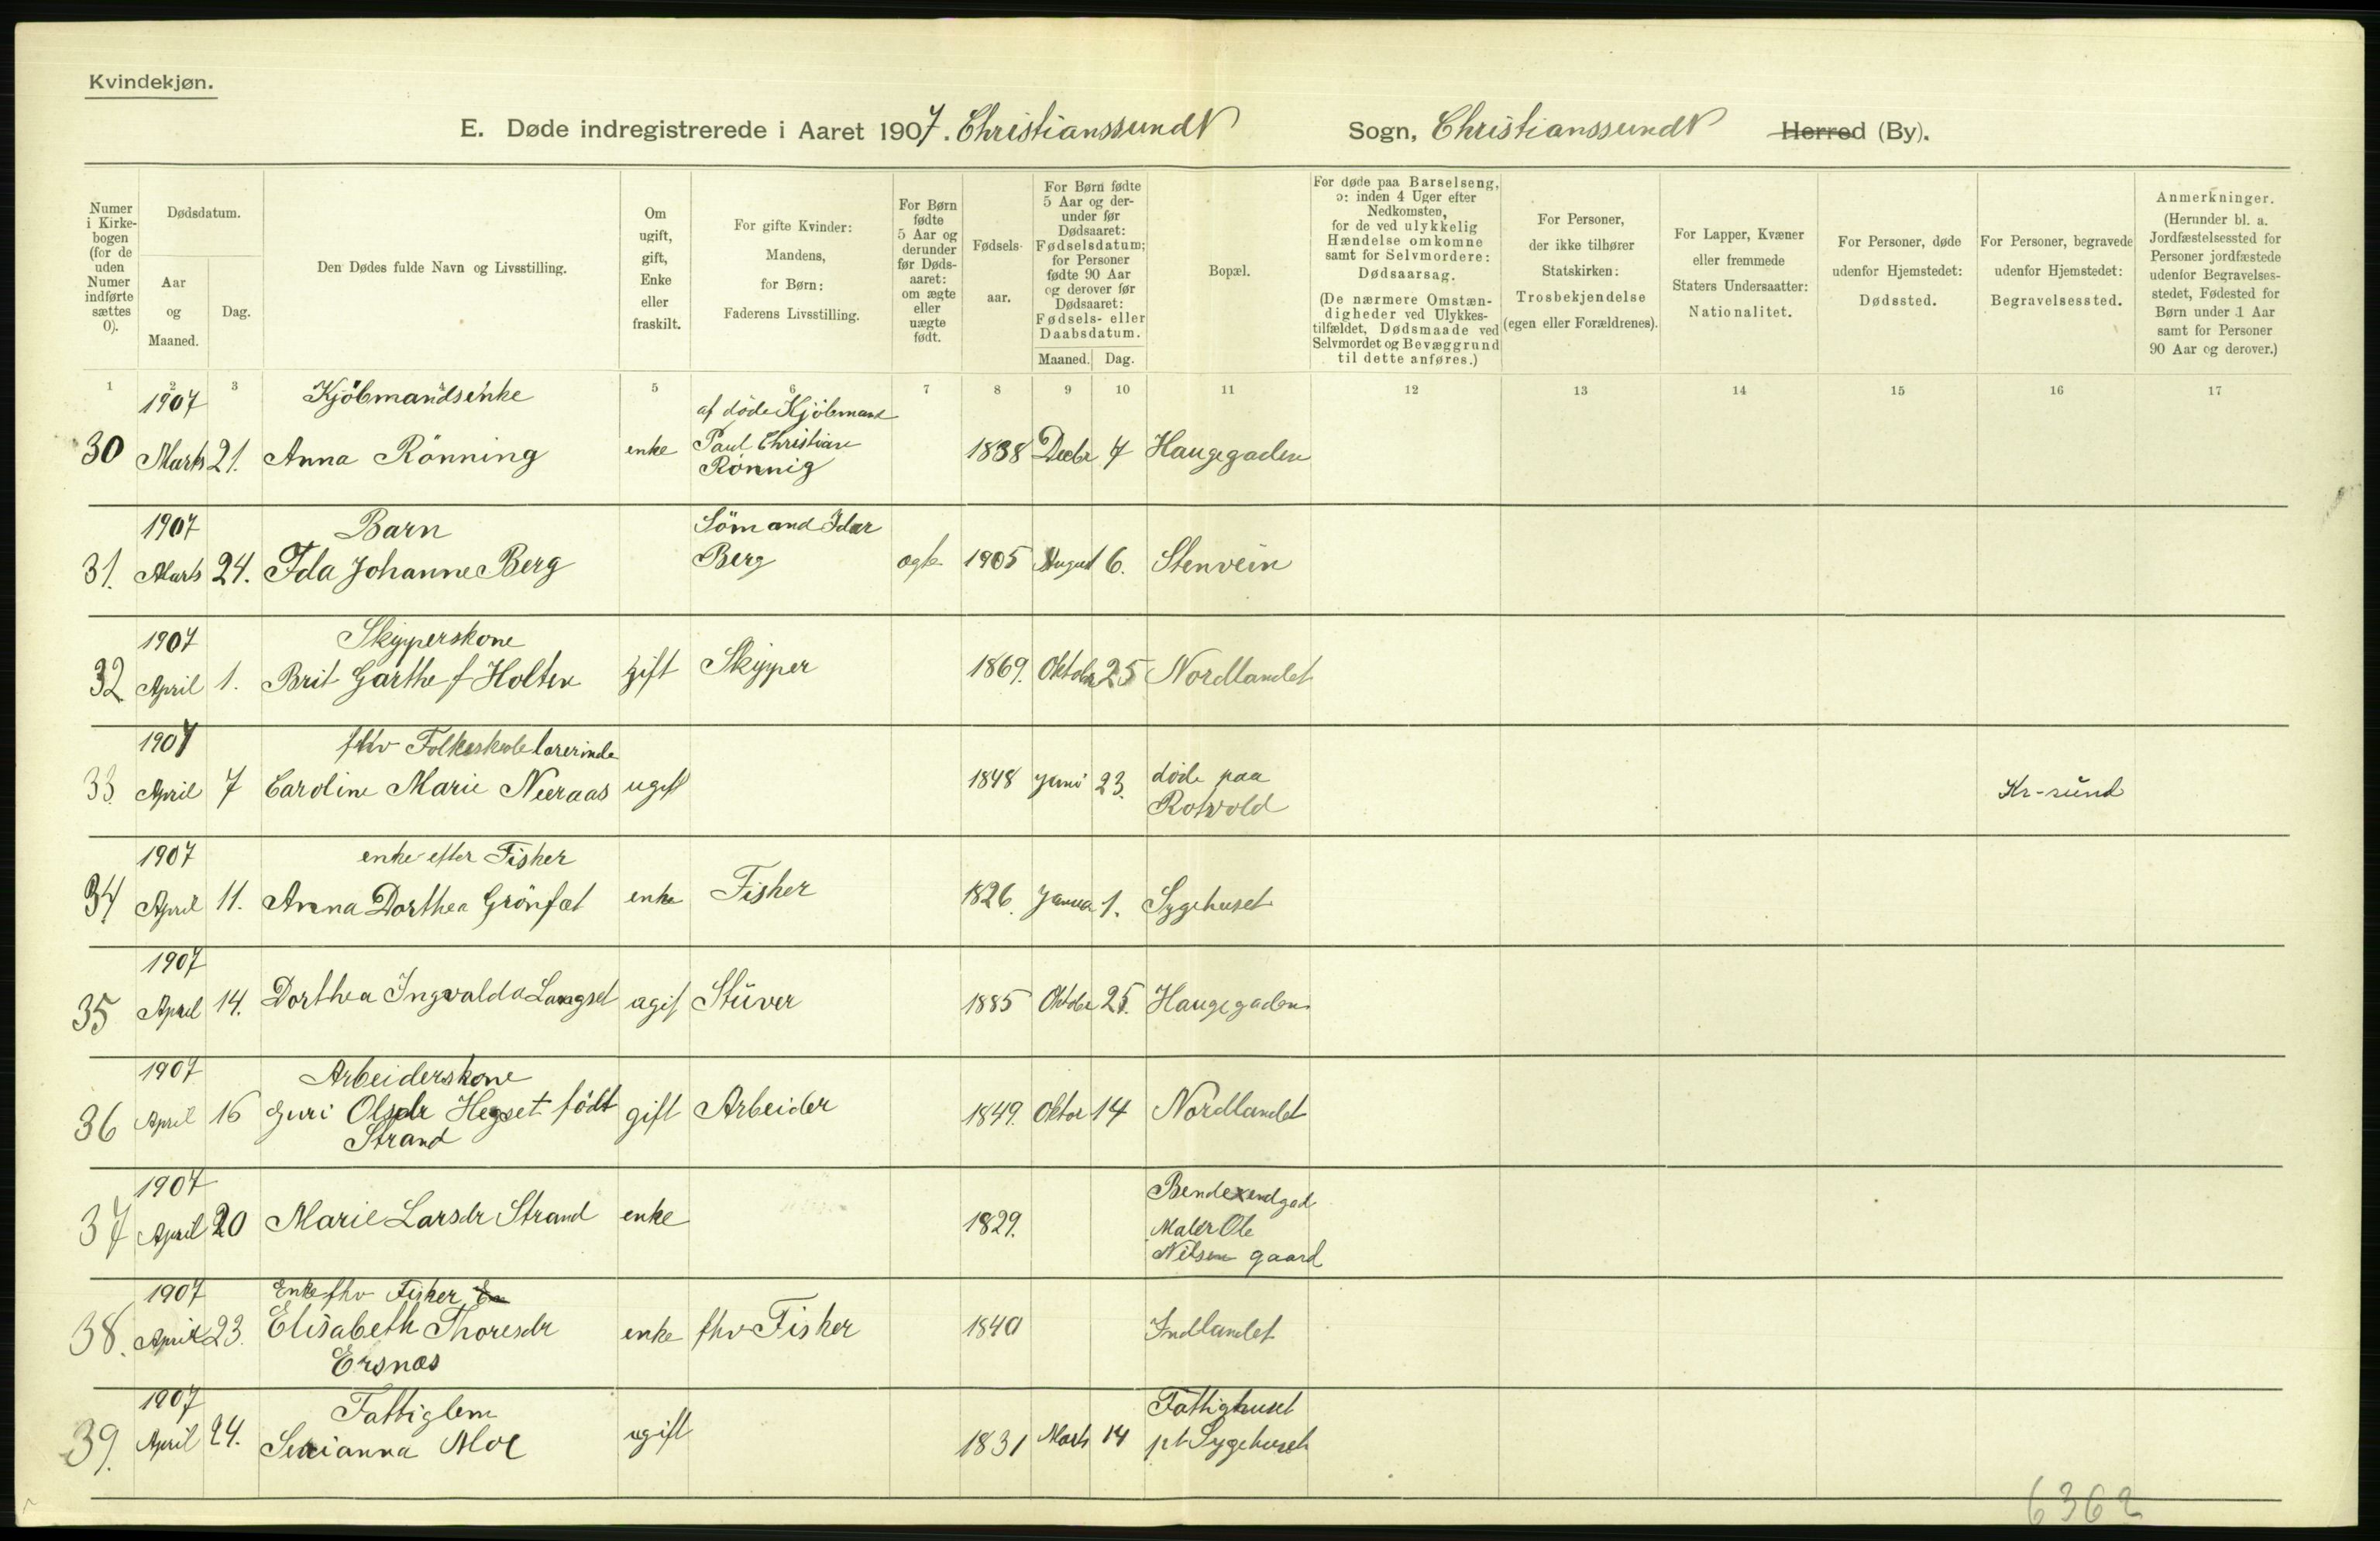 Kvindekjøn.
E. Døde indregistrerede i Aaret 1907. Christianssunds Sogn, Christianssunds Herred (By).
Numer i Kirkebogen (for de uden Numer indførte sættes 0).
Dødsdatum.
Aar og Maaned.
Dag.
Den Dødes fulde Navn og Livsstilling.
Om ugift, gift, Enke eller fraskilt.
For gifte Kvinder: Mandens, for Børn: Faderens Livsstilling.
For Børn fødte 5 Aar og derunder før Dødsaaret: om ægte eller uægte født.
Fødselsaar.
For Børn fødte 5 Aar og derunder før Dødsaaret: Fødselsdatum; for Personer fødte 90 Aar og derover før Dødsaaret: Fødsels- eller Daabsdatum.
Maaned. Dag.
Bopæl.
For døde paa Barselseng, ɔ: inden 4 Uger efter Nedkomsten, for de ved ulykkelig Hændelse omkomne samt for Selvmordere: Dødsaarsag.
(De nærmere Omstændigheder ved Ulykkestilfældet, Dødsmaade ved Selvmordet og Bevæggrund til dette anføres.)
For Personer, der ikke tilhører Statskirken: Trosbekjendelse (egen eller Forældrenes).
For Lapper, Kvæner eller fremmede Staters Undersaatter: Nationalitet.
For Personer, døde udenfor Hjemstedet: Dødssted.
For Personer, begravede udenfor Hjemstedet: Begravelsessted.
Anmerkninger.
(Herunder bl. a. Jordfæstelsessted for Personer jordfæstede udenfor Begravelsesstedet, Fødested for Børn under 1 Aar samt for Personer 90 Aar og derover.)
1 2 3 4 5 6 7 8 9 10 11 12 13 14 15 16 17
1907 Kjöbmandsenke af döde Kjöbmand
30 Marts 21. Anna Rönning enke Paul Christian Rönnig 1838 Decbr 7 Haugegaden
1907 Barn Sömand Idar
31. Marts 24. Ida Johanne Berg Berg ægte 1905 August 6. Stenvein
1907 Skipperskone
32 April 1. Brit Garthe f Holten gift Skipper 1869. Oktober 25 Nordlandet
1907 fhv Folkeskolelærerinde
33. April 7 Caroline Marie Neeraas ugift 1848 Juni 23. döde paa Rotvold Kr-sund
1907 enke efter Fisker
34 April 11. Anna Dorthea Grönfæt enke Fisker 1826. Januar 1. Sygehuset
1907
35 April 14. Dorthea Ingvalda Langset ugift Stüver 1885 Oktober 25. Haugegaden
1907 Arbeiderskone
36 April 16 Guri Olsdr Hegset födt gift Arbeider 1849. Oktor 14 Nordlandet
Strand
1907 Bendexendgad
37 April 20 Marie Larsdr Strand enke 1829. Maler Ole
Nilsen gaard
1907 Enke fhv Fisker En
38. April 23. Elisabeth Thoresdr enke fhv Fisker 1840 Indlandet
Ersnæs
1907 Fattiglem Fattighuset
39. April 24. Serianna Moe ugift 1831 Marts 14 pt Sygehuset
6362